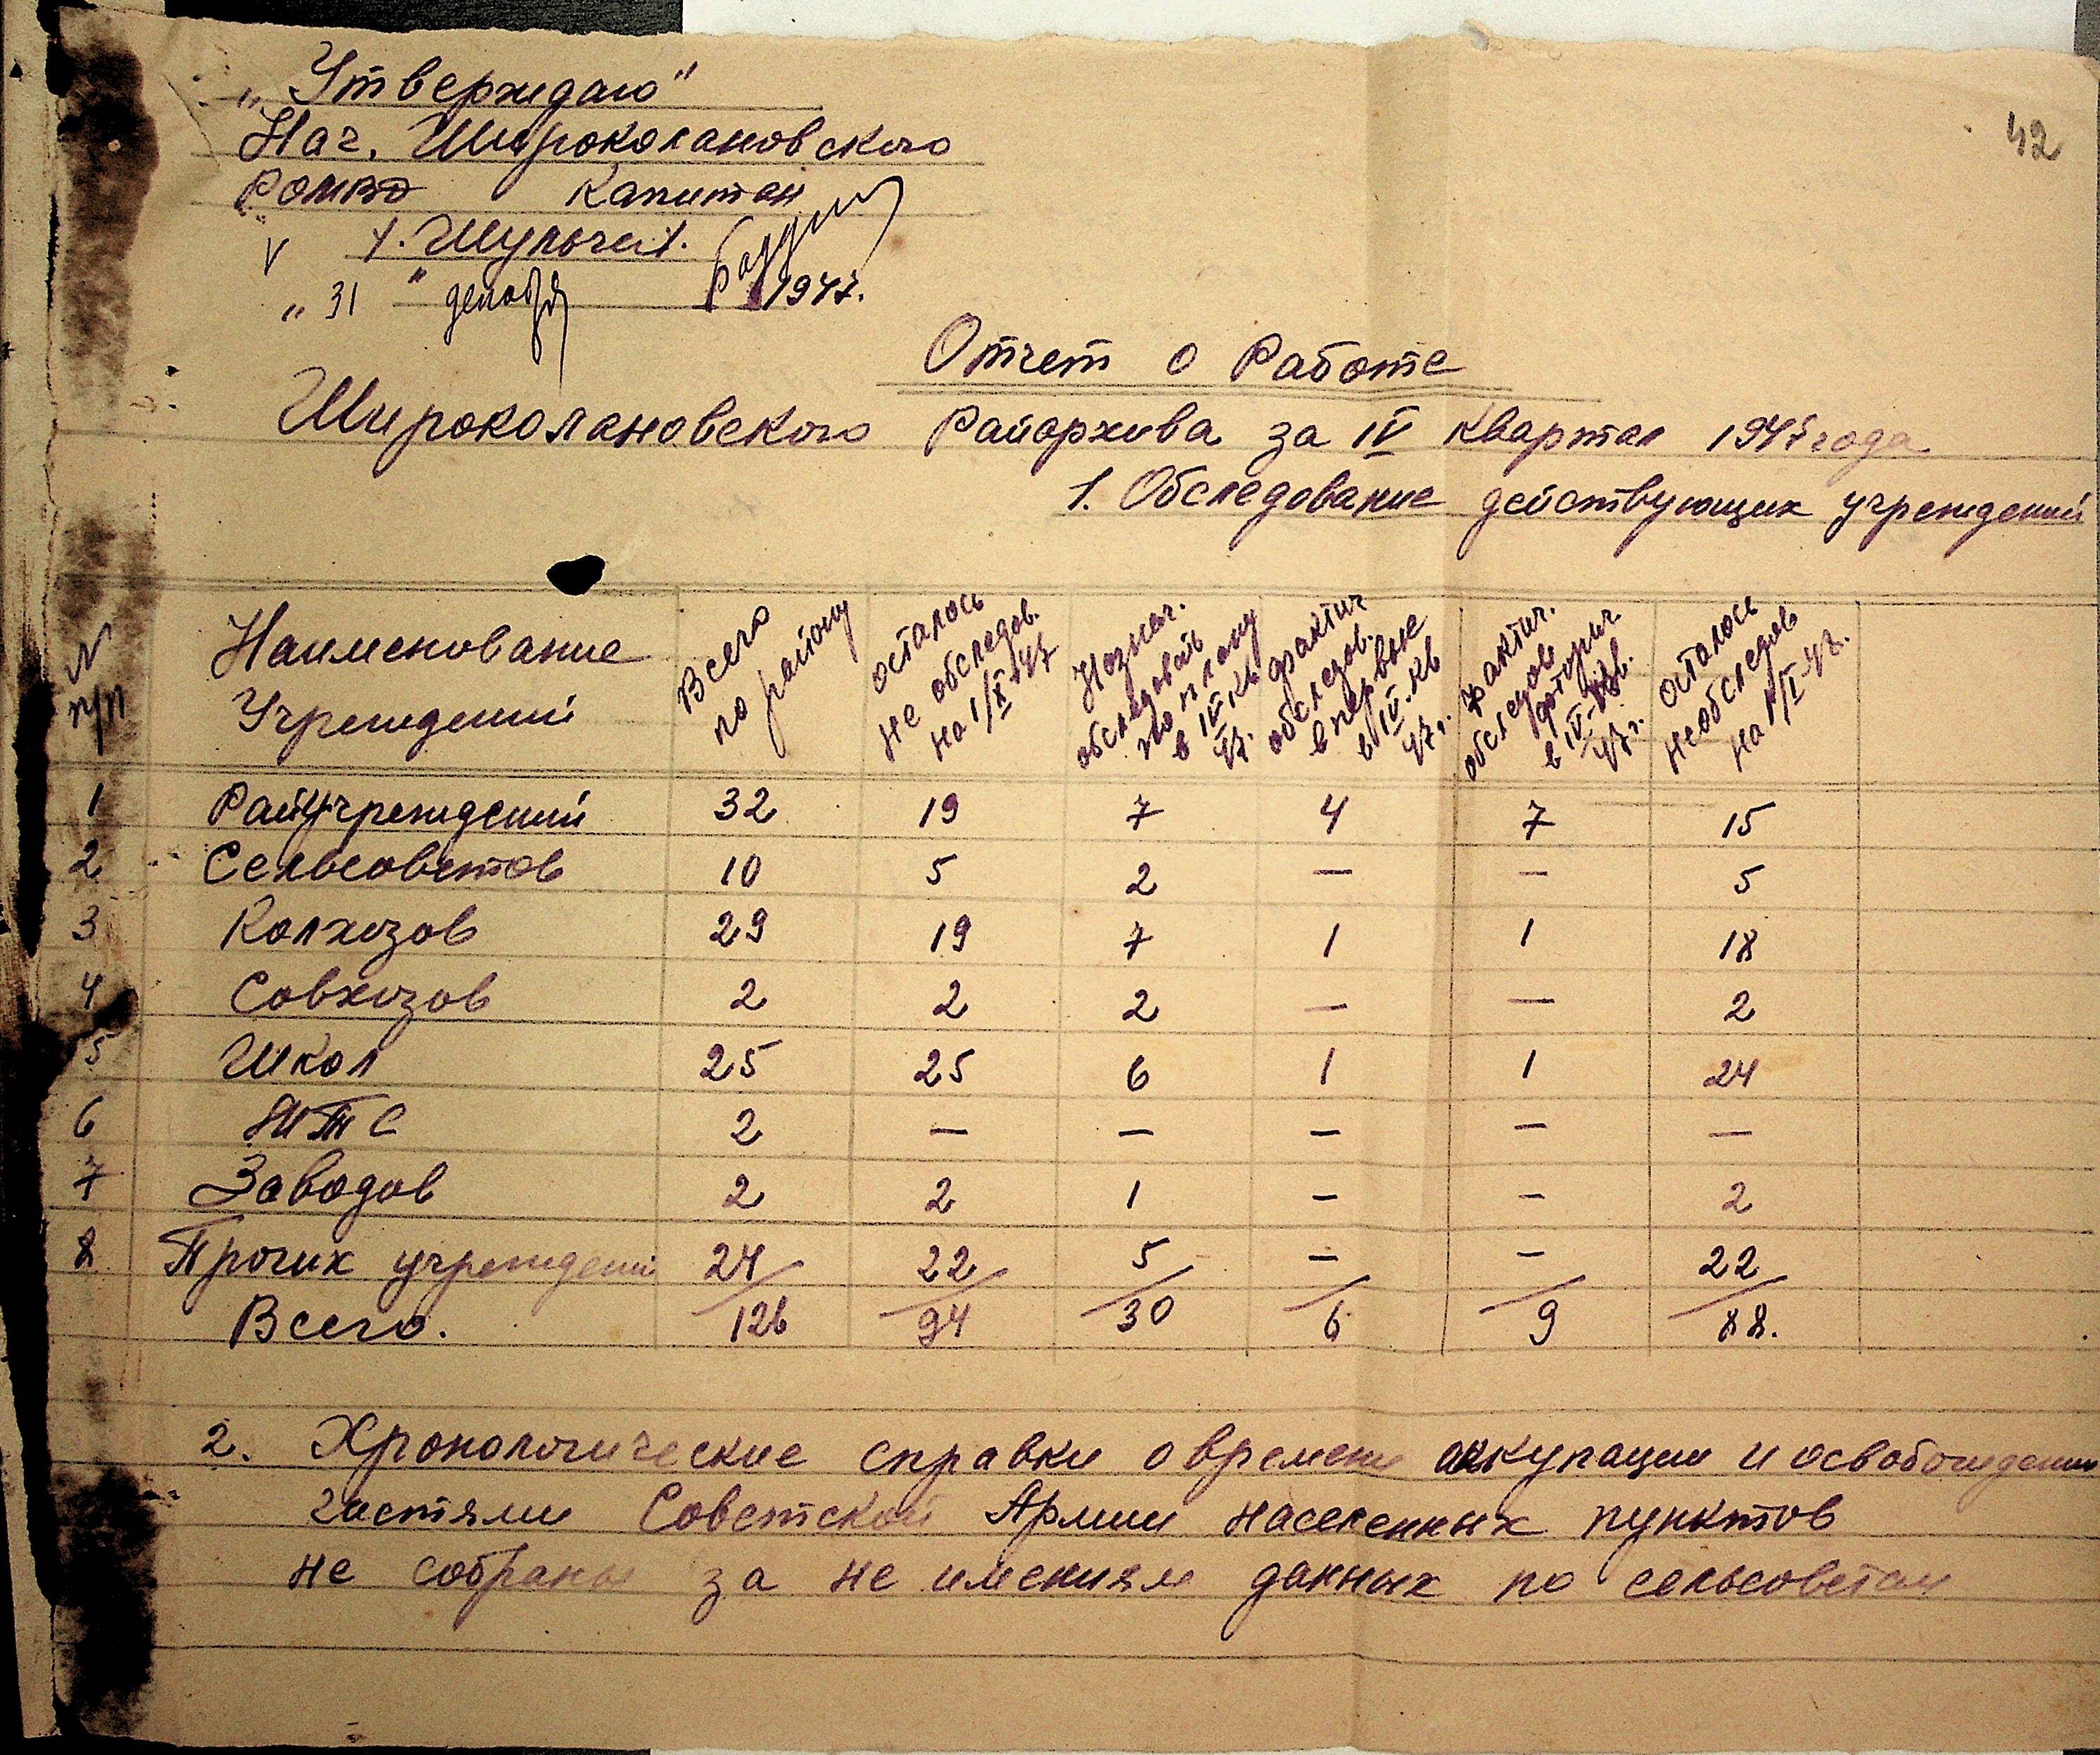 42
„Утверждаю"
Нач. Широколановского
РОМВД Капитан
/. Шульга /.
„31" декабря 1947.
Отчет о Работе
Широколановского Райархива за IV квартал 1947 года
1. Обследование действующих учреждений
N п/п | Наименование Учреждений | Всего по району | осталось не обследов. на 1/X-47 | Назнач. обследовать по плану в IV кв 47. | фактич обследов. впервые в IV-кв 47 г. | фактич. обследов вторич. в IV-кв. 47 г. | осталось необследов на 1/I-48.
1 Райучреждений 32 19 7 4 7 15
2 Сельсоветов 10 5 2 — — 5
3 Колхозов 29 19 7 1 1 18
4 Совхозов 2 2 2 — — 2
5 Школ 25 25 6 1 1 24
6 МТС 2 — — — — —
7 Заводов 2 2 1 — — 2
8 Прочих учреждений 24 22 5 — — 22
Всего. 126 94 30 6 9 88.
2. Хронологические справки о времени аккупации и освобождении
частями Советской Армии населенных пунктов
не собраны за не имениям данных по сельсоветам